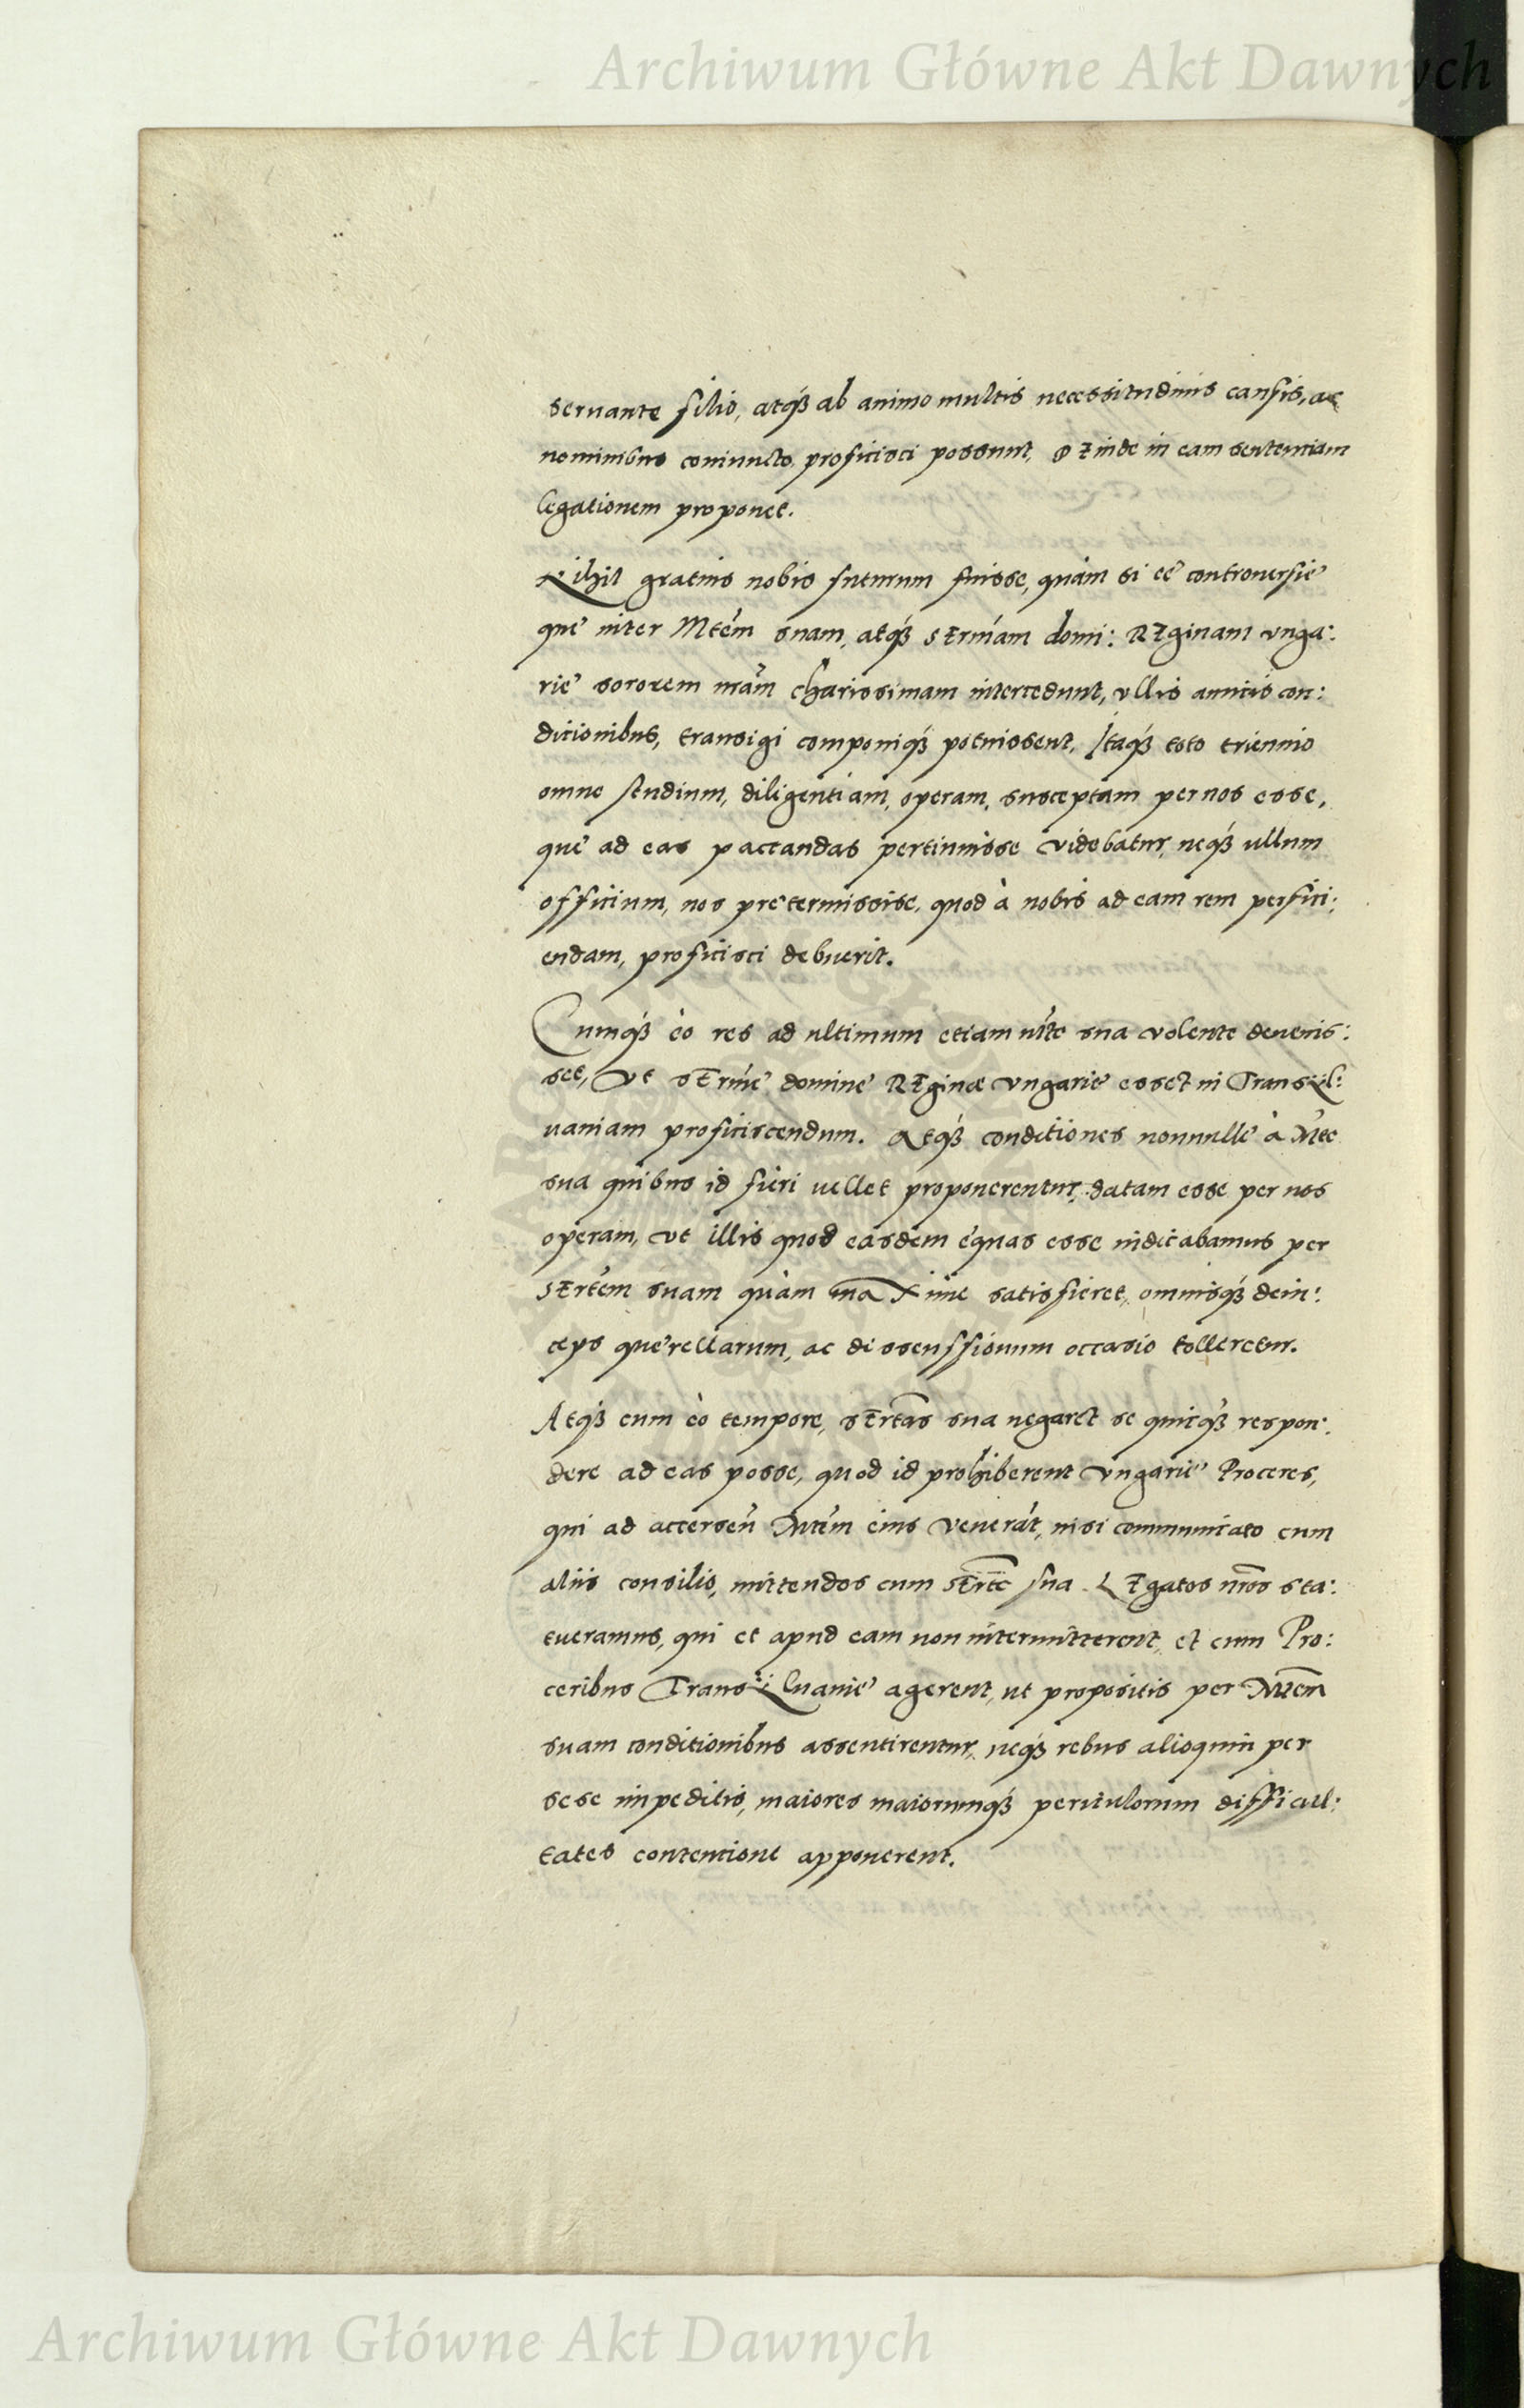 Archiwum Główne Akt Dawnych
seruante filio, atq́ꝫ ab animo multis necessitudinis causis, ac
nominibus coniuncto, proficisci possunt, Deinde in eam sententiam
legationem proponet.
Nihil gratius nobis futurum fuisse, quàm si eę controuersię
quę inter Mtẽm suam, atq́ꝫ SErm̃am domi: REginam vnga:
rię sororem nr̃am charissimam intercedunt, vllis amicis con:
ditionibus, transigi componiq́ꝫ potuissent, Itaq́ꝫ toto triennio
omne studium, diligentiam, operam, susceptam per nos esse,
quę ad eas pactandas pertinuisse videbatur, neq́ꝫ ullum
officium, nos prętermissise, quod à nobis ad eam rem perfici:
endam, proficisci debuerit.
Cumq́ꝫ eò res ad ultimum etiam Mt̃e sua volente deuenis:
set, vt SErm̃ę dominę REginæ vngarię esset in Transÿl:
uaniam proficiscendum. Atq́ꝫ conditiones nonnullę à Mt̃e
sua quibus id fieri uellet proponerentur, datam esse per nos
operam, vt illis quod easdem ęquas esse iudicabamus per
SErtẽm suam quàm maxime satisfieret, omnisq́ꝫ dein:
ceps quęrellarum, ac dissenssionum occasio tolleretur.
Atq́ꝫ cum eò tempore, SErt̃as sua negaret se quicq́ꝫ respon:
dere ad eas posse, quod id prohiberent vngarię Proceres,
qui ad accersen̄ Mtẽm eius venerãt, nisi communicato cum
aliis consilio, mittendos cum SErt̃e sua LEgatos nr̃os sta:
tueramus, qui et apud eam non intermitterent, et cum Pro:
ceribus Transÿluanię agerent, ut propositis per Mtẽm
suam conditionibus assentirentur, neq́ꝫ rebus alioquin per
sese impeditis, maiores maiorumq́ꝫ periculorum difficul:
tates contentione apponerent.
Archiwum Główne Akt Dawnych